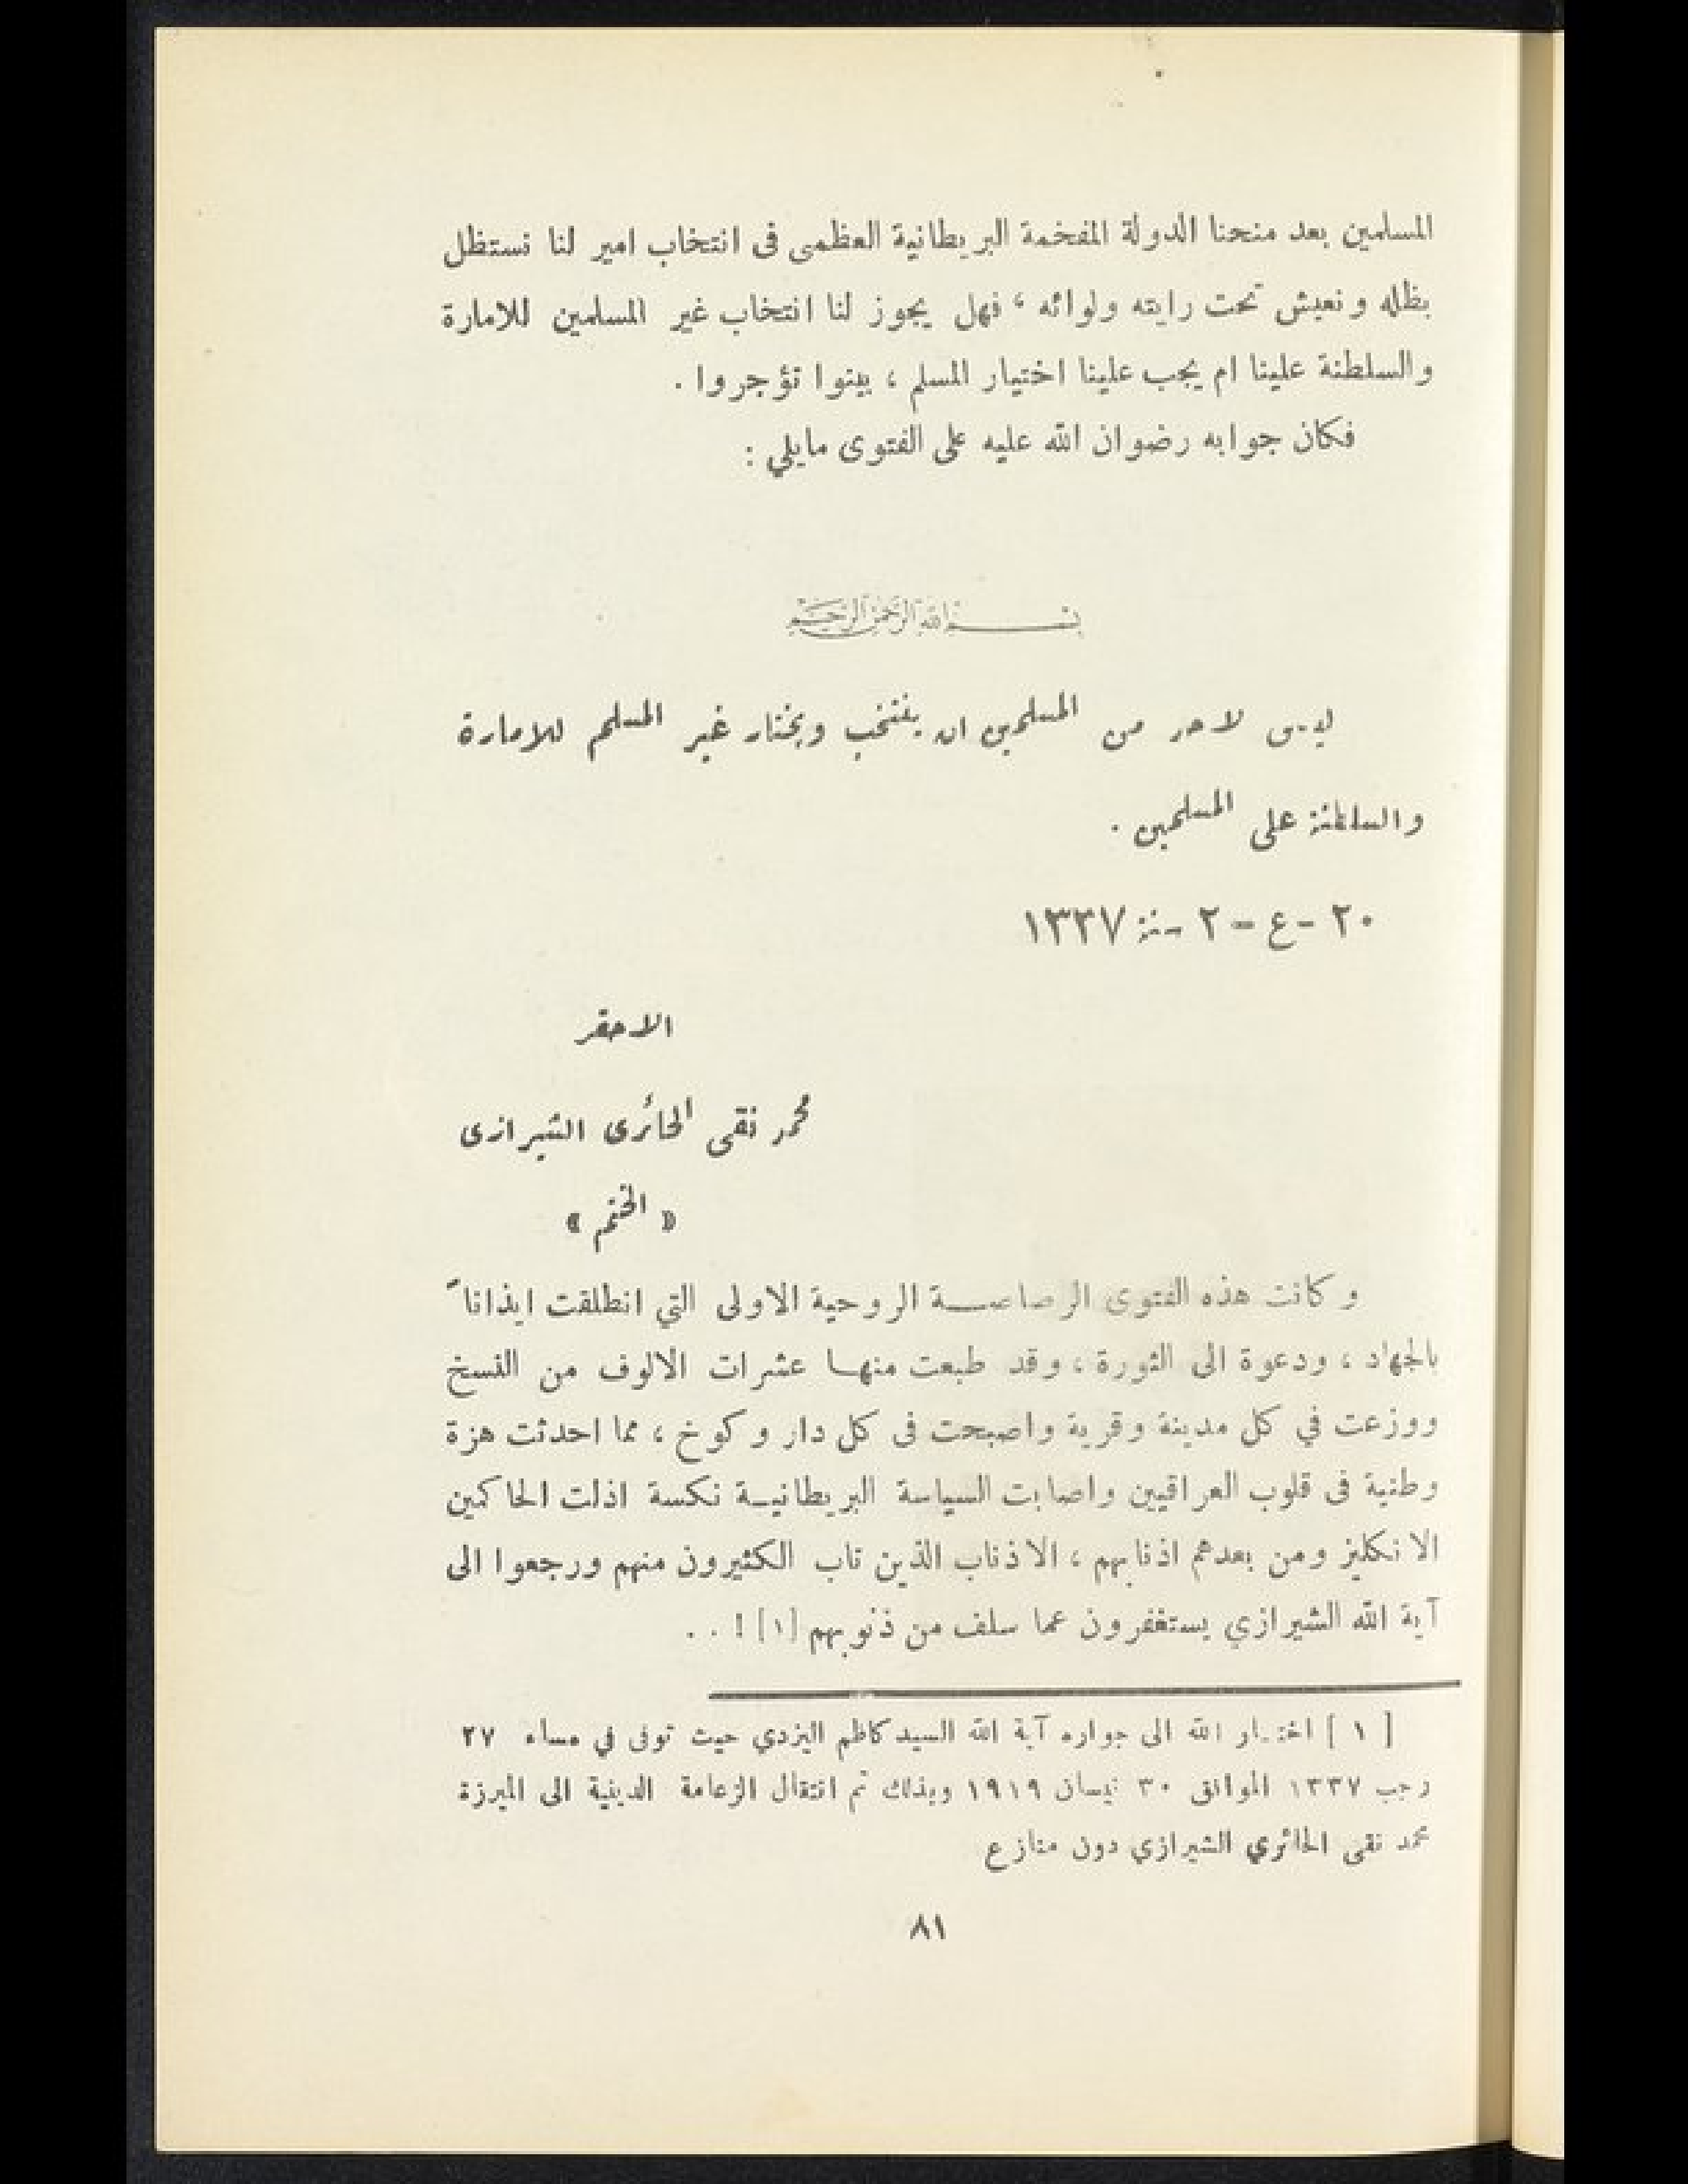 المسلمين بعد منحنا الدولة المفخمة البريطانية العظمى فى انتخاب امير لنا نستظل
بظله ونعيش تحت رايته ولوائه ، فهل يجوز لنا انتخاب غير المسلمين للامارة
والسلطنة علينا ام يجب علينا اختيار المسلم ، بينوا تؤجروا .
فكان جوابه رضوان الله عليه على الفتوى مايلي :
بسم الله الرحمن الرحيم
ليس لاحد من المسلمين ان ينتخب ويختار غير المسلم للامارة
والسلطنة على المسلمين .
٢٠ - ع - ٢ سنة ١٣٣٧
الاحقر
محمد تقى الحائرى الشيرازى
« الختم »
وكانت هذه الفتوى الرصاصة الروحية الاولى التي انطلقت ايذاناً
بالجهاد ، ودعوة الى الثورة ، وقد طبعت منها عشرات الالوف من النسخ
ووزعت في كل مدينة وقرية واصبحت فى كل دار وكوخ ، مما احدثت هزة
وطنية فى قلوب العراقيين واصابت السياسة البريطانية نكسة اذلت الحاكمين
الانكليز ومن بعدهم اذنابهم ، الاذناب الذين تاب الكثيرون منهم ورجعوا الى
آية الله الشيرازي يستغفرون عما سلف من ذنوبهم [١] ! . .
[ ١ ] اختار الله الى جواره آية الله السيد كاظم اليزدي حيث توفى في مساء ٢٧
رجب ١٣٣٧ الموافق ٣٠ نيسان ١٩١٩ وبذلك تم انتقال الزعامة الدينية الى الميرزة
محمد تقى الحائري الشيرازي دون منازع
٨١